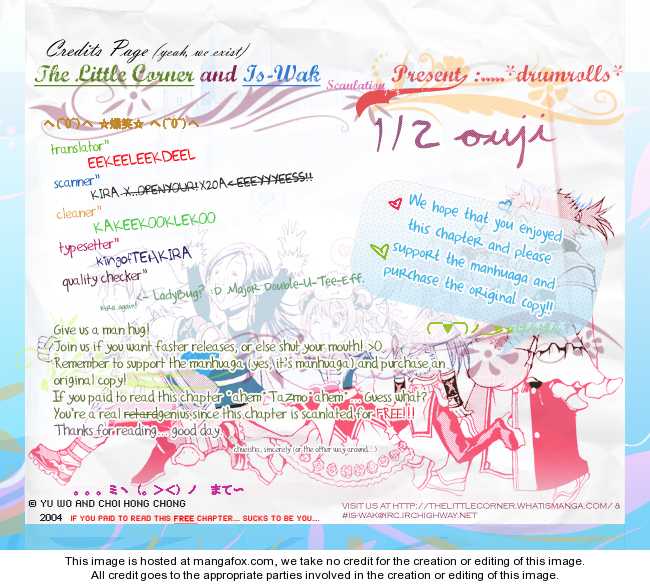 Credits Page (yeah, we exist)
The Little Corner and Is-Wak Scanlation Present, :.....*drumrolls*
1/2 ouji
へ(^0^)へ ☆爆笑☆ へ(^0^)へ
translator"
EEKEELEEKDEEL
scanner"
KIRA X...OPENYOUR!X20A<EEEYYYEESS!!
cleaner"
KAKEEKOOKLEKOO
typesetter"
KingofTEHKIRA
quality checker"
Kira again! <- LadyBug? :D Major Double-U-Tee-Eff.
We hope that you enjoyed
this chapter and please
support the manhuaga and
purchase the original copy!!
Give us a man hug!
Join us if you want faster releases, or else shut your mouth! >:O
Remember to support the manhuaga (yes, it's manhuaga) and purchase an
original copy!
If you paid to read this chapter *ahem* Tazmo *ahem* ... Guess what?
You're a real retard genius since this chapter is scanlated for FREE!!!
Thanks for reading... good day.
sincerely (or the other way around...)
。。。ミヽ(。><)ノ まて～
© YU WO AND CHOI HONG CHONG
2004 IF YOU PAID TO READ THIS FREE CHAPTER... SUCKS TO BE YOU...
VISIT US AT HTTP://THELITTLECORNER.WHATISMANGA.COM/ &
#IS-WAK@IRC.IRCHIGHWAY.NET
This image is hosted at mangafox.com, we take no credit for the creation or editing of this image.
All credit goes to the appropriate parties involved in the creation or editing of this image.